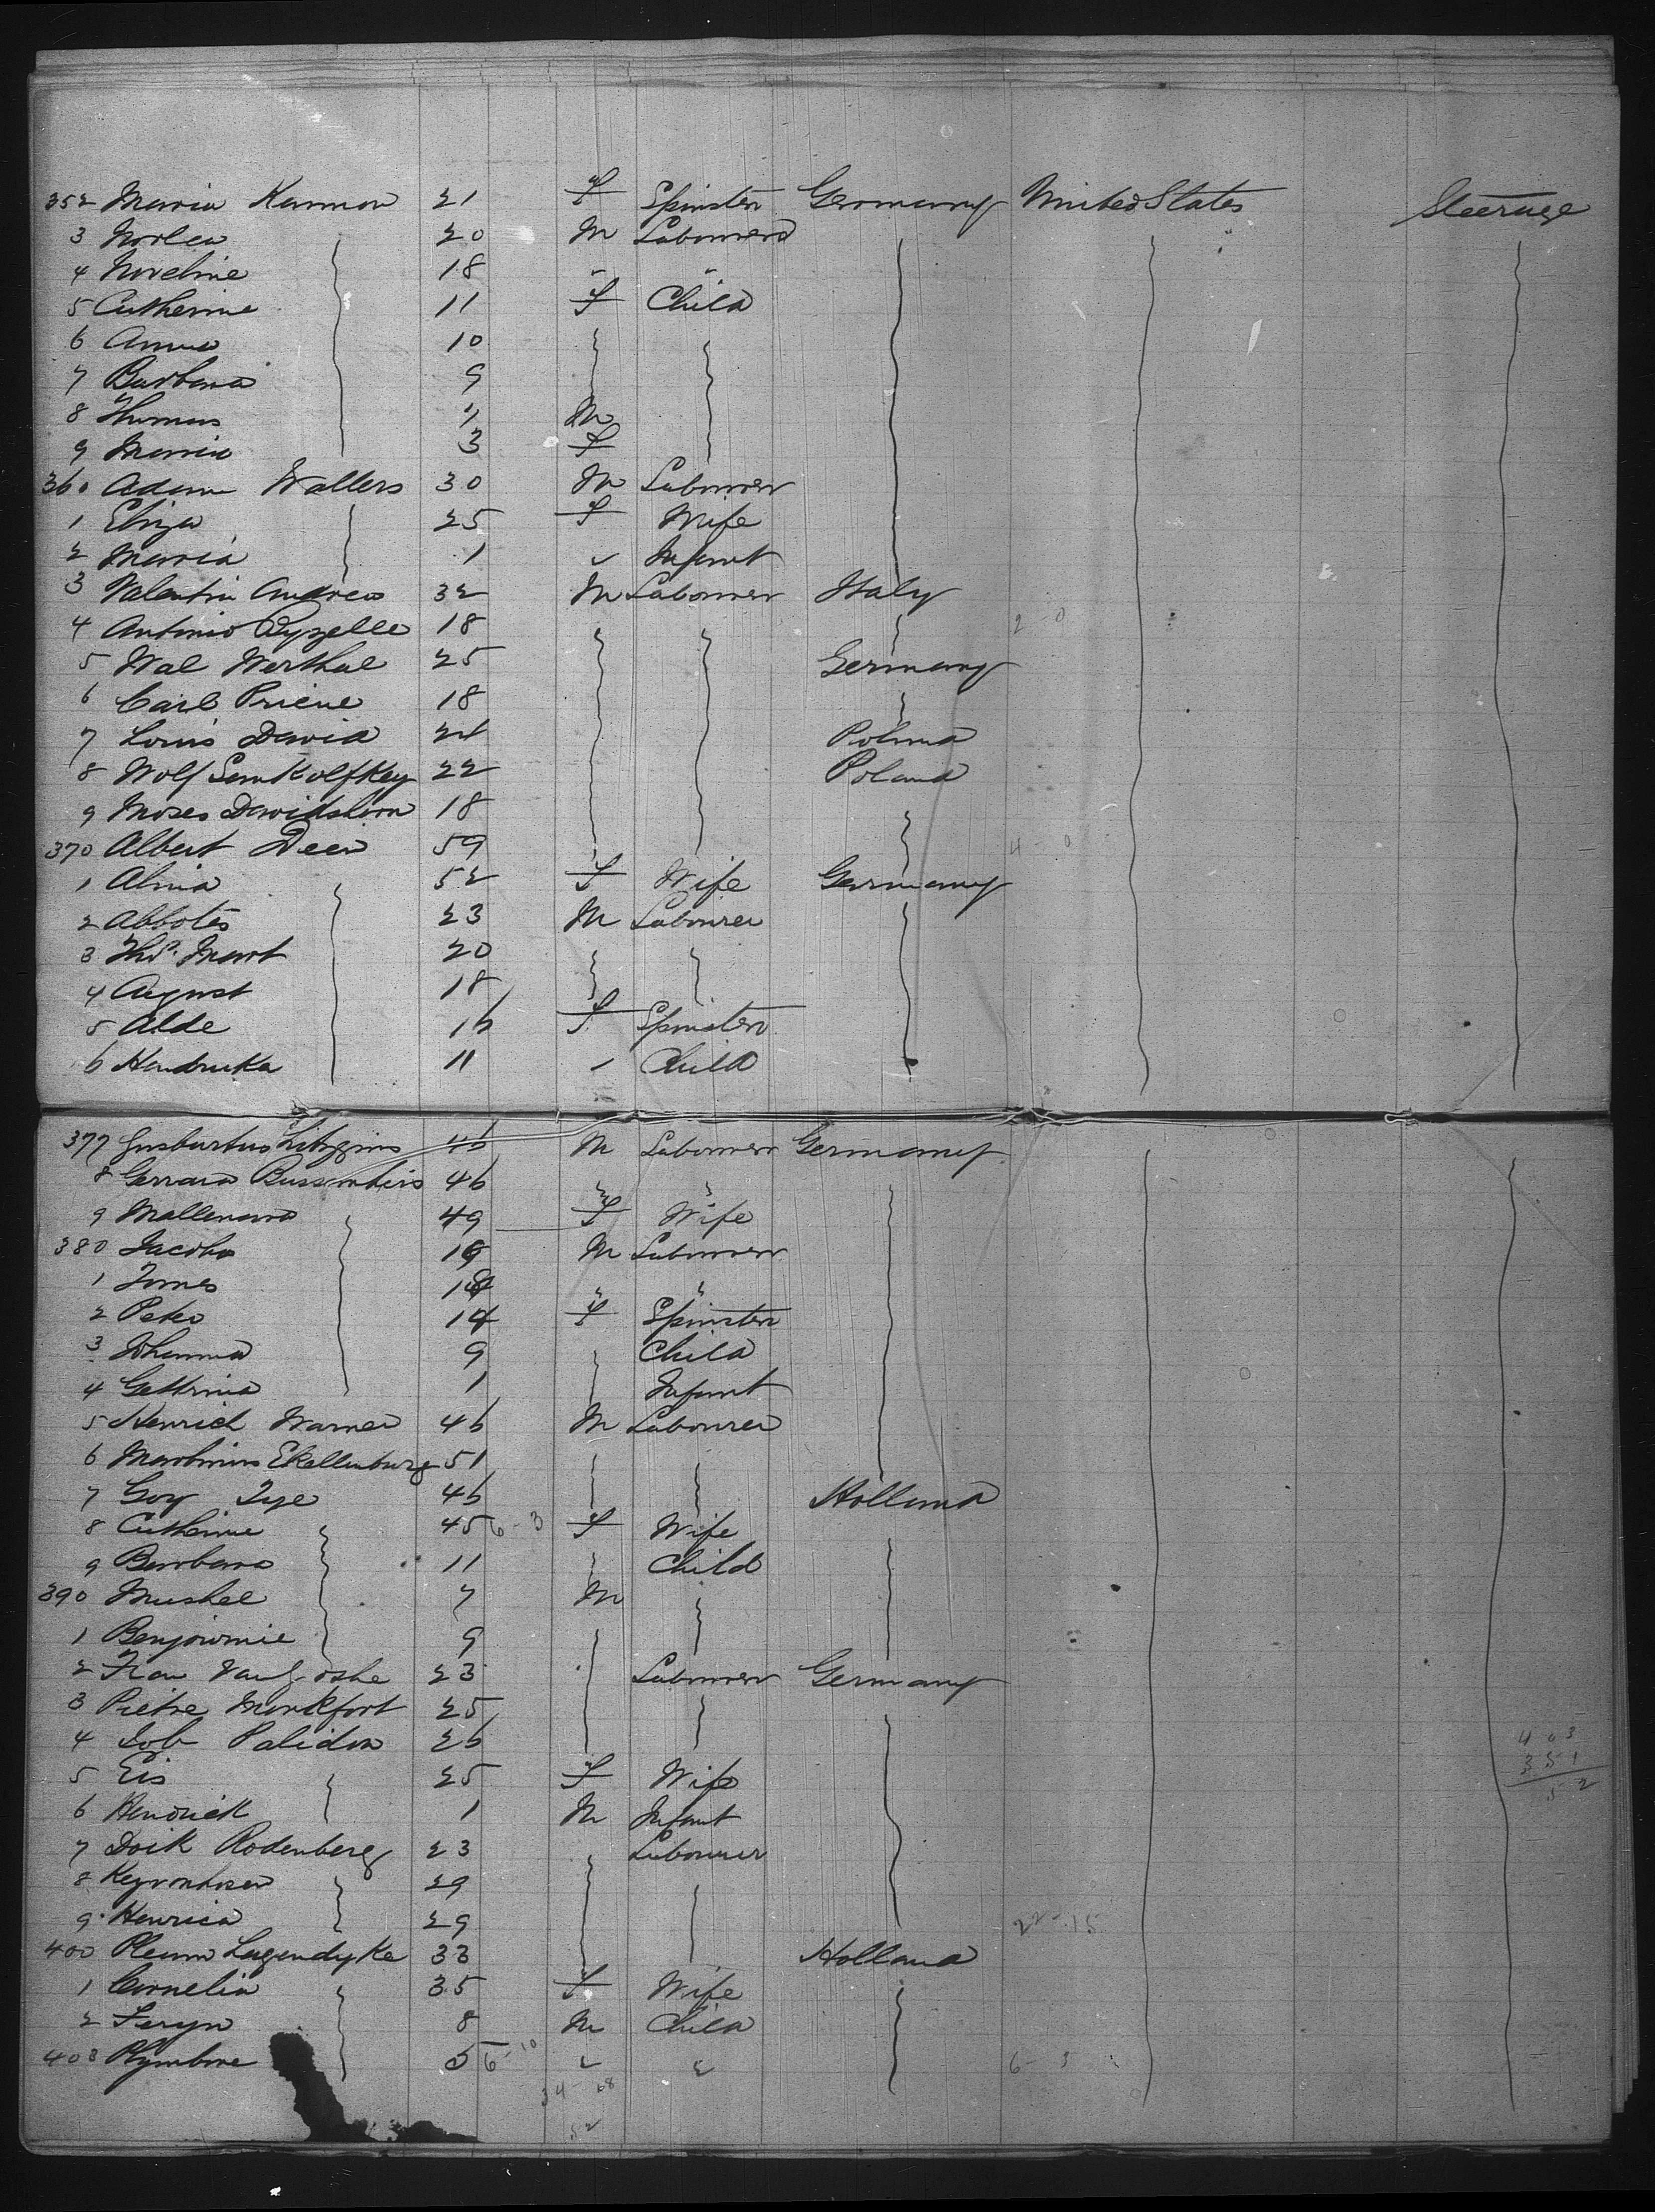 352 Maria Kammon 21 F Spinster Germany United States Steerage
3 20 M Labourer
4 18 " "
5 Catherine 11 F Child
6 Anna 10
7 Barbara 9
8 Thomas 7 M
9 Maria 3 F
360 Adam Wallers 30 M Labourer
1 Eliza 25 F Wife
2 Maria 1 " Infant
3 Valentin Andreas 32 M Labourer Italy
4 Antonio 18 2 - 0
5 Wal Werthal 25 Germany
6 Carl Priene 18
7 Louis David 24 Poland
8 Wolf 22 Poland
9 Moses Davidshorn 18
370 Albert Deer 59 4 - 0
1 Alina 52 F Wife Germany
2 Abbotes 23 M Labourer
3 20
4 August 18
5 Alde 16 F Spinster
6 Hendrika 11 " Child
377 Gusburtus 46 M Labourer Germany
8 Gerrard 46 " "
9 49 F Wife
380 Jacoba 19 M Labourer
1 Jones 18 " "
2 Peter 14 F Spinster
3 Johanna 9 Child
4 Gettrina 1 Infant
5 Henrich Warner 46 M Labourer
6 Ekellenburg 51
7 Goy 46 Holland
8 Catherine 45 6 - 3 F Wife
9 Barbara 11 Child
390 Mushel 7 M
1 9
2 23 Labourer Germany
3 Pietre Monkfort 25
4 Job Palidon 26 403
5 Eis 25 F Wife 351
6 Hendrick 1 M Infant 52
7 Doik Rodenberg 23 Labourer
8 29
9 Henrica 29 22 - 15
400 Pleun Lagendyke 33 Holland
1 Cornelia 35 F Wife
2 8 M Child
403 5 6 - 10 " " 6 - 3
34 - 68
52